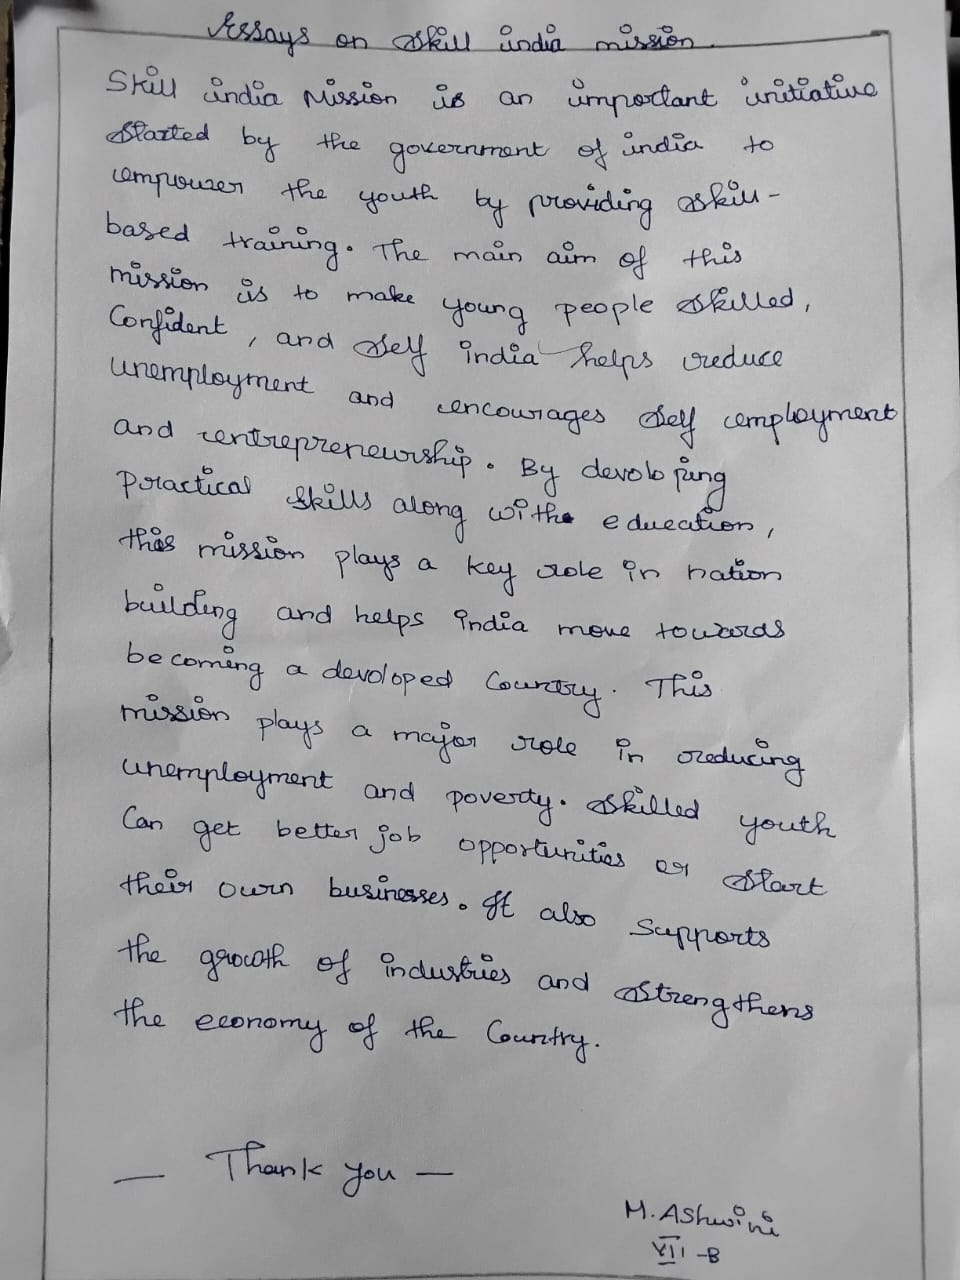 Essays on Skill india mission.
Skill india Mission is an important initiative
Started by the government of india to
empower the youth by providing skill-
based training. The main aim of this
mission is to make young people skilled,
Confident, and Self india helps reduce
unemployment and encourages Self employment
and entrepreneurship. By devoloping
Practical skills along withe education,
this mission plays a key role in nation
building and helps india move towards
becoming a devoloped Country. This
mission plays a major role in reducing
unemployment and poverty. Skilled youth
Can get better job opportunities or Start
their own businesses. It also Supports
the growth of industries and Strengthens
the economy of the Country.
— Thank you —
M. Ashwini
VII -B